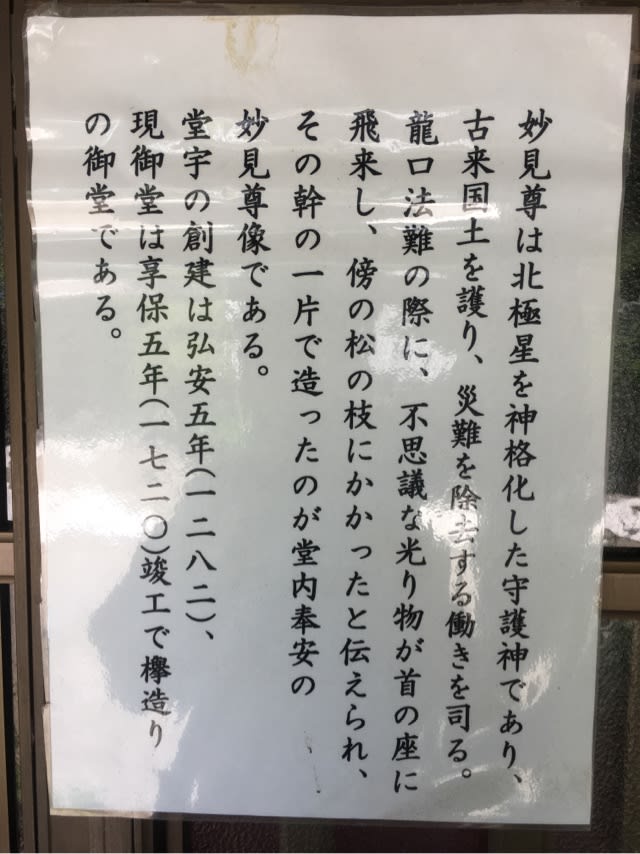 妙見尊は北極星を神格化した守護神であり、
古来国土を護り、災難を除去する働きを司る。
龍口法難の際に、不思議な光り物が首の座に
飛来し、傍の松の枝にかかったと伝えられ、
その幹の一片で造ったのが堂内奉安の
妙見尊像である。
堂宇の創建は弘安五年(一二八二)、
現御堂は享保五年(一七二〇)竣工で欅造り
の御堂である。